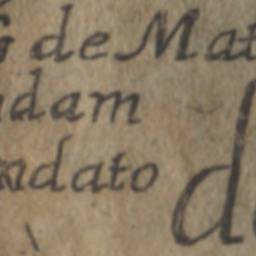 de Mat
dam
ndato
d